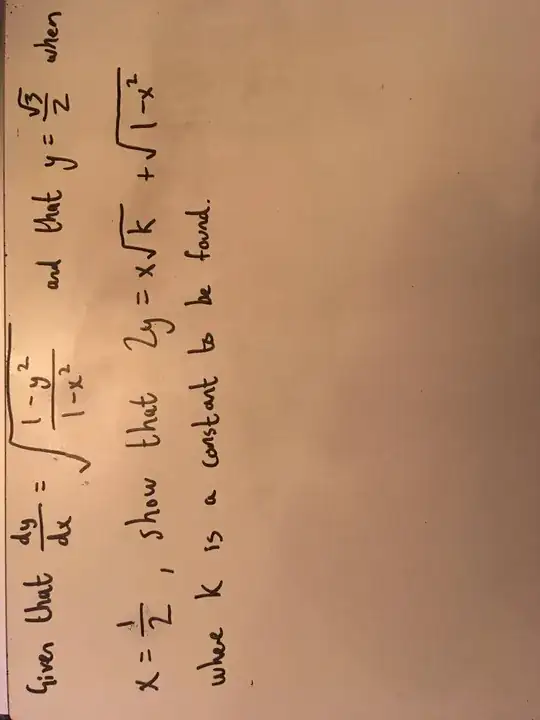 Given that dy/dx = √((1-y²)/(1-x²)) and that y = √3/2 when
x = 1/2, show that 2y = x√k + √(1-x²)
where k is a constant to be found.